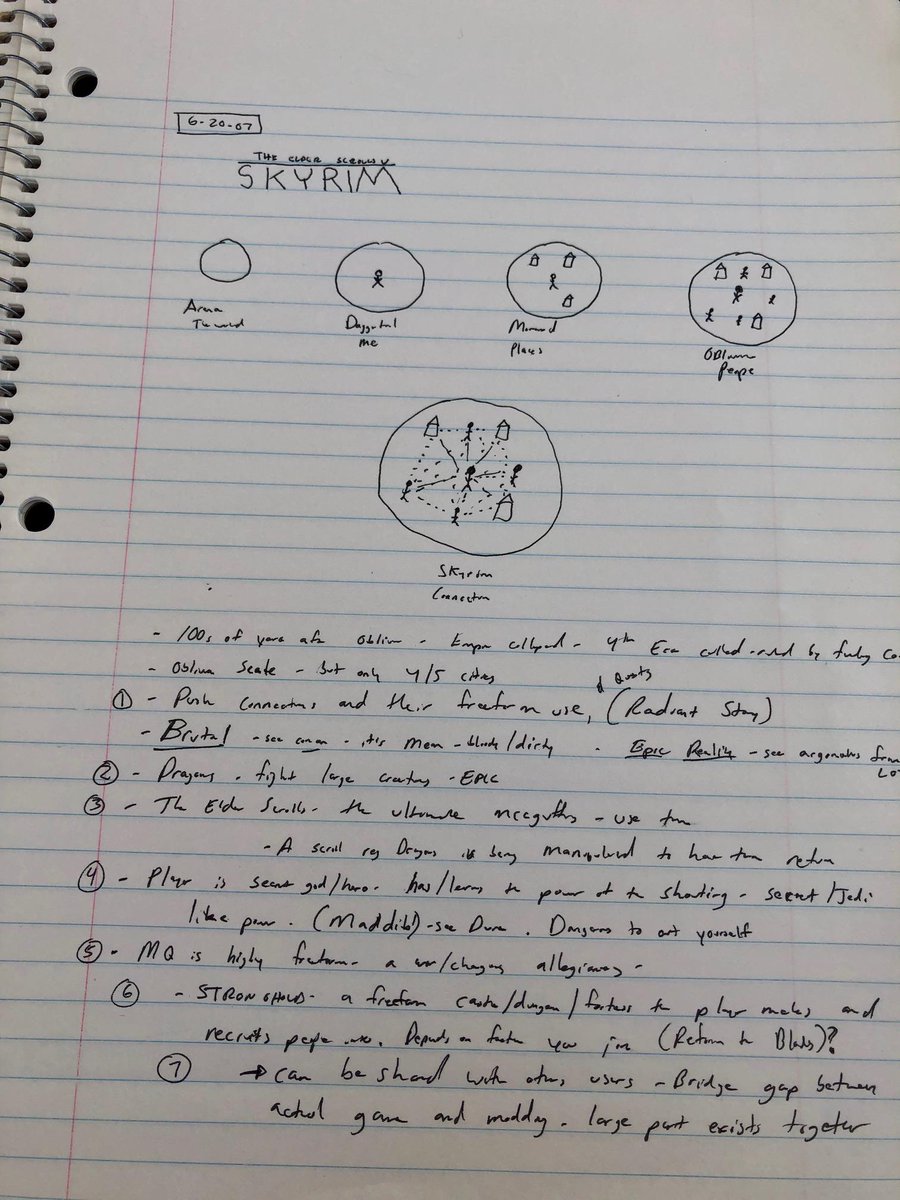 6-20-07
THE ELDER SCROLLS V
SKYRIM
Arena
The world
Daggerfall
me
Morrowind
Places
Oblivion
People
Skyrim
Connection
- 100s of years after Oblivion - Empire collapsed - 4th Era called - ruled by
- Oblivion scale - But only 4/5 cities
& Quests
① - Push connections and their freeform use, (Radiant Story)
- Brutal - see conan - it's mean - bloody/dirty - Epic Reality - see argonaths from
LOTR
② - Dragons - fight large creatures - EPIC
③ - The Elder Scrolls - the ultimate mcguffins - use them
- A scroll reg Dragons is being manipulated to have them return
④ - Player is secret god/hero - has/learns the power of the shouting - secret/Jedi
like power. (Maddib!) - see Dune. Dangerous to out yourself
⑤ - MQ is highly freeform - a war/changing allegiances -
⑥ - STRONGHOLDS - a freeform castle/dungeon/fortress the player makes and
recruits people into. Depends on faction you join (Return to Blades)?
⑦ → can be shared with other users - Bridge gap between
actual game and modding - large part exists together